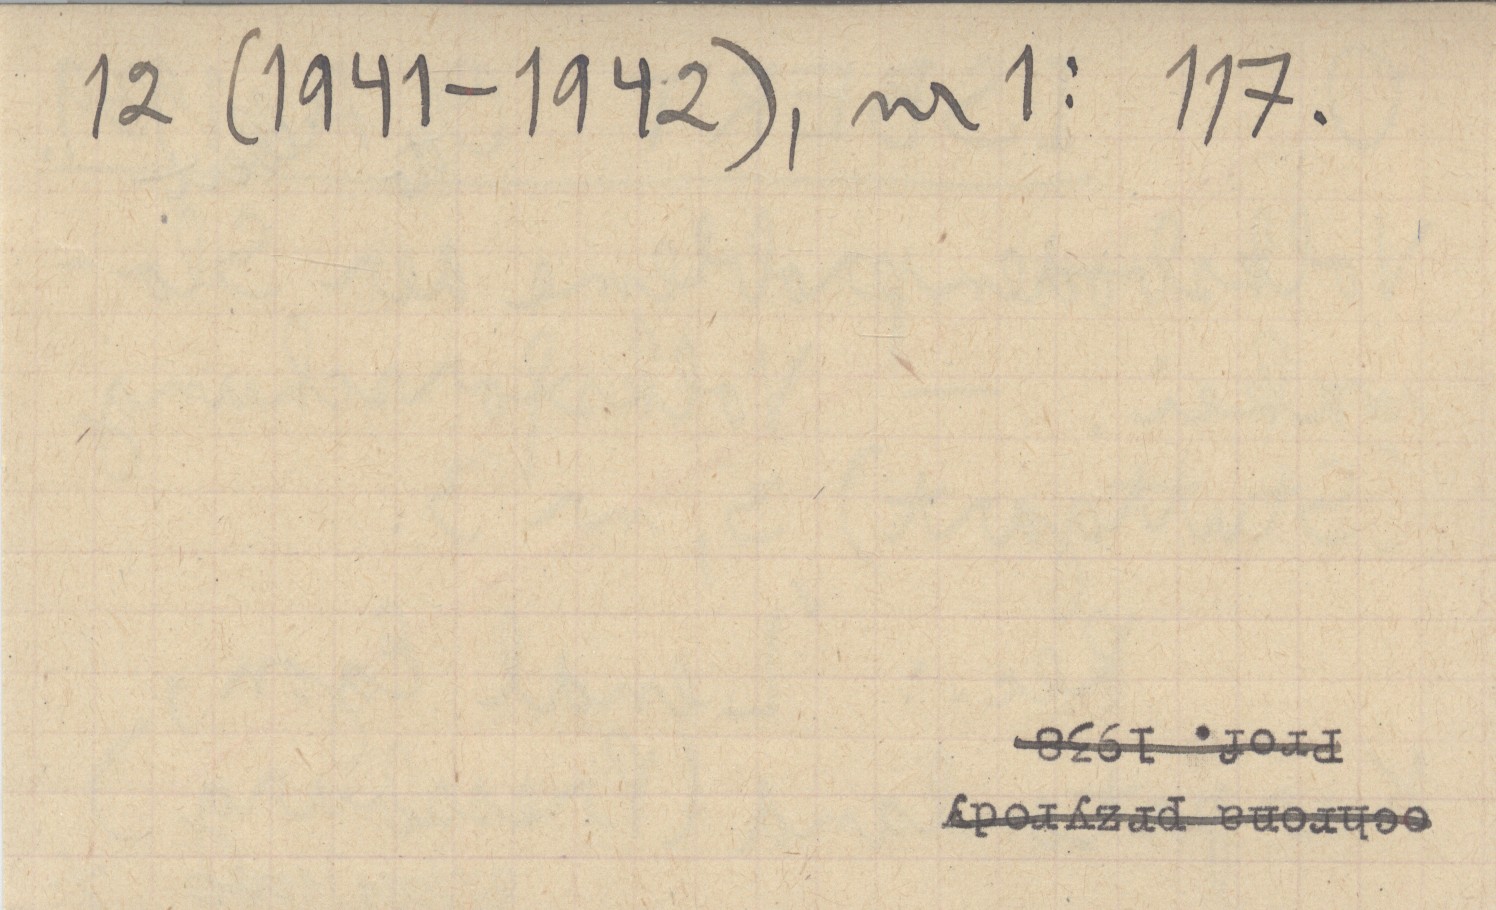 12 (1941-1942), nr 1: 117.
Prof. 1938
ochrona przyrody